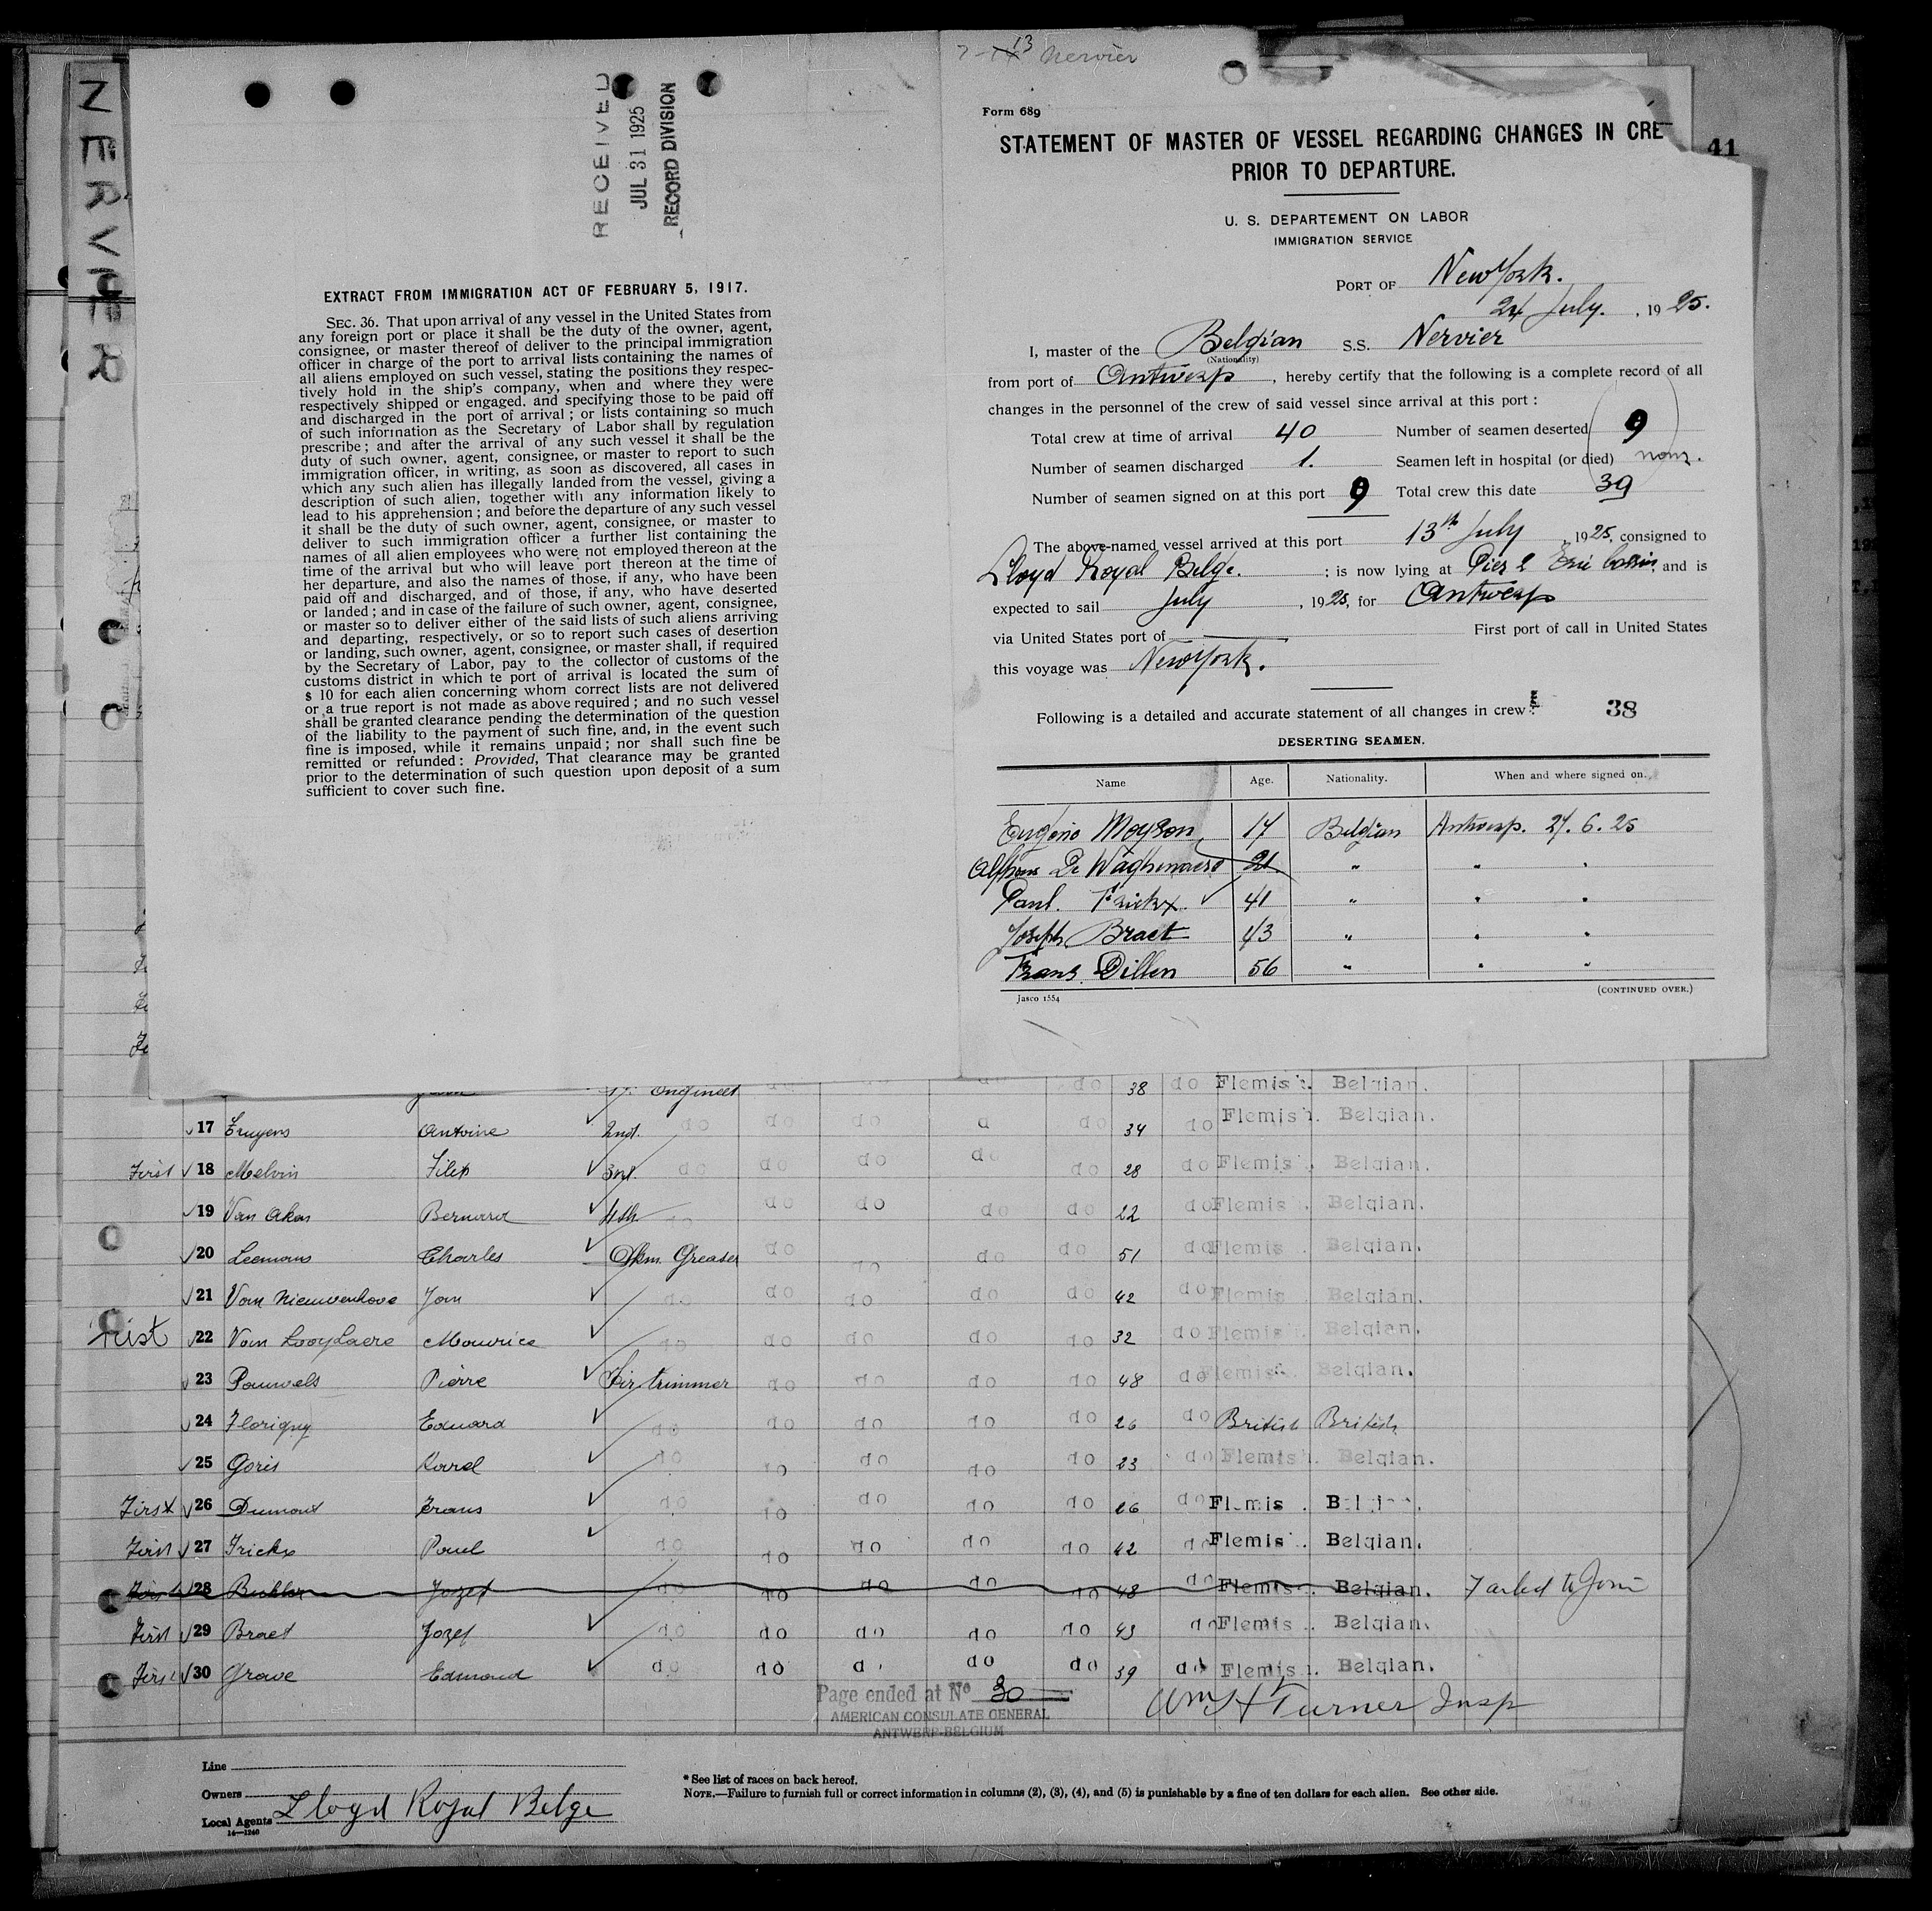 NERVIER
RECEIVED
JUL 31 1925
RECORD DIVISION
EXTRACT FROM IMMIGRATION ACT OF FEBRUARY 5, 1917.
SEC. 36. That upon arrival of any vessel in the United States from
any foreign port or place it shall be the duty of the owner, agent,
consignee, or master thereof of deliver to the principal immigration
officer in charge of the port to arrival lists containing the names of
all aliens employed on such vessel, stating the positions they respec-
tively hold in the ship's company, when and where they were
respectively shipped or engaged. and specifying those to be paid off
and discharged in the port of arrival; or lists containing so much
of such information as the Secretary of Labor shall by regulation
prescribe; and after the arrival of any such vessel it shall be the
duty of such owner, agent, consignee, or master to report to such
immigration officer, in writing, as soon as discovered, all cases in
which any such alien has illegally landed from the vessel, giving a
description of such alien, together with any information likely to
lead to his apprehension; and before the departure of any such vessel
it shall be the duty of such owner, agent, consignee, or master to
deliver to such immigration officer a further list containing the
names of all alien employees who were not employed thereon at the
time of the arrival but who will leave port thereon at the time of
her departure, and also the names of those, if any, who have been
paid off and discharged, and of those, if any, who have deserted
or landed; and in case of the failure of such owner, agent, consignee,
or master so to deliver either of the said lists of such aliens arriving
and departing, respectively, or so to report such cases of desertion
or landing, such owner, agent, consignee, or master shall, if required
by the Secretary of Labor, pay to the collector of customs of the
customs district in which te port of arrival is located the sum of
$ 10 for each alien concerning whom correct lists are not delivered
or a true report is not made as above required; and no such vessel
shall be granted clearance pending the determination of the question
of the liability to the payment of such fine, and, in the event such
fine is imposed, while it remains unpaid; nor shall such fine be
remitted or refunded: Provided, That clearance may be granted
prior to the determination of such question upon deposit of a sum
sufficient to cover such fine.
7-13 Nervier
Form 689
STATEMENT OF MASTER OF VESSEL REGARDING CHANGES IN CRE
41
PRIOR TO DEPARTURE.
U. S. DEPARTEMENT ON LABOR
IMMIGRATION SERVICE
PORT OF New York.
24 July. , 1925.
I, master of the Belgian S.S. Nervier
(Nationality)
from port of Antwerp, hereby certify that the following is a complete record of all
changes in the personnel of the crew of said vessel since arrival at this port:
Total crew at time of arrival 40 Number of seamen deserted 9
Number of seamen discharged 1. Seamen left in hospital (or died) none.
Number of seamen signed on at this port 9 Total crew this date 39
The above-named vessel arrived at this port 13th July, 1925, consigned to
Lloyd Royal Belge. ; is now lying at Pier 2 Erie Basin, and is
expected to sail July, 1925, for Antwerp
via United States port of First port of call in United States
this voyage was New York.
Following is a detailed and accurate statement of all changes in crew:
38
DESERTING SEAMEN.
Name Age. Nationality. When and where signed on.
Eugène Moyson 17 Belgian Antwerp. 27.6.25
Alfhons De Waghenaere 21 " " "
Paul. Frickx 41 " " "
Joseph Braet 43 " " "
Frans Dillen 56 " " "
Jasco 1554 (CONTINUED OVER.)
Engineer do 38 do Flemish. Belgian.
17 Eruyens Antoine 2nd. do do do d do 34 do Flemish. Belgian.
First 18 Melvin Filip 3rd. do do do do do 28 do Flemis . Belgian.
19 Van Aken Bernard 4th do do do do do 22 do Flemis . Belgian.
20 Leemans Charles Dkm. Greaser do do do do 51 do Flemis . Belgian.
21 Van Nieuwenhove Jan do do do do do 42 do Flemis Belgian.
First 22 Van Looy Laere Maurice do do do do do 32 do Flemis . Belgian.
23 Pauwels Pierre Fir. trimmer do do do do 48 do Flemish. Belgian.
24 Florigny Eduard do do do do do 26 do British British
25 Goris Karel do do do do do 23 do Flemish. Belgian.
First 26 Dumont Frans do do do do do 26 do Flemis . Belgian.
First 27 Frickx Paul do do do do do 42 do Flemis . Belgian.
First 28 Jozef do do do do do 48 do Flemis . Belgian. Failed to Join
First 29 Braet Jozef do do do do do 43 do Flemis . Belgian.
First 30 Grawe Edmond do do d do do 39 do Flemish. Belgian.
Page ended at No 30
AMERICAN CONSULATE GENERAL
ANTWERP-BELGIUM
Wm H Turner Insp
Line
Owners
Local Agents Lloyd Royal Belge
14—1240
* See list of races on back hereof.
NOTE.—Failure to furnish full or correct information in columns (2), (3), (4), and (5) is punishable by a fine of ten dollars for each alien. See other side.